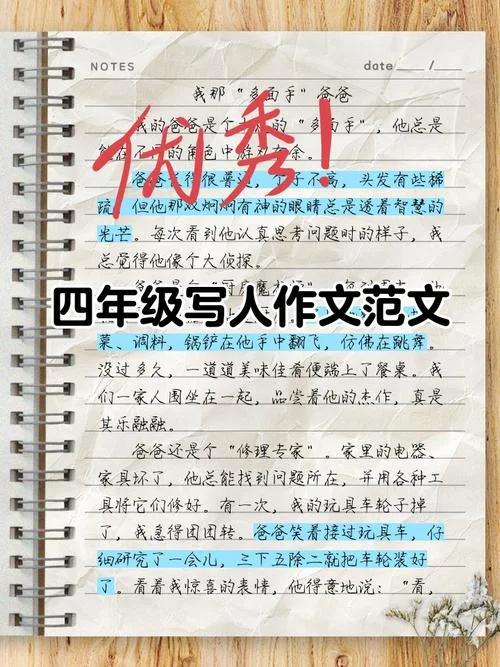 NOTES
date
我那“多面手”爸爸
优秀!
我的爸爸是个 的“多面手”，他总是
能在不 的角色中游刃有余。
爸爸长得很普 ，个子不高，头发有些稀
疏，但他那双炯炯有神的眼睛总是透着智慧的
光芒。每次看到他认真思考问题时的样子，我
总觉得他像个大侦探。
四年级写人作文范文
菜、调料，锅铲在他手中翻飞，仿佛在跳舞。
没过多久，一道道美味佳肴便端上了餐桌。我
们一家人围坐在一起，品尝着他的杰作，真是
其乐融融。
爸爸还是个“修理专家”。家里的电器、
家具坏了，他总能找到问题所在，并用各种工
具将它们修好。有一次，我的玩具车轮子掉
了，我急得团团转。爸爸笑着接过玩具车，仔
细研究了一会儿，三下五除二就把车轮装好
了。看着我惊喜的表情，他得意地说：“看，